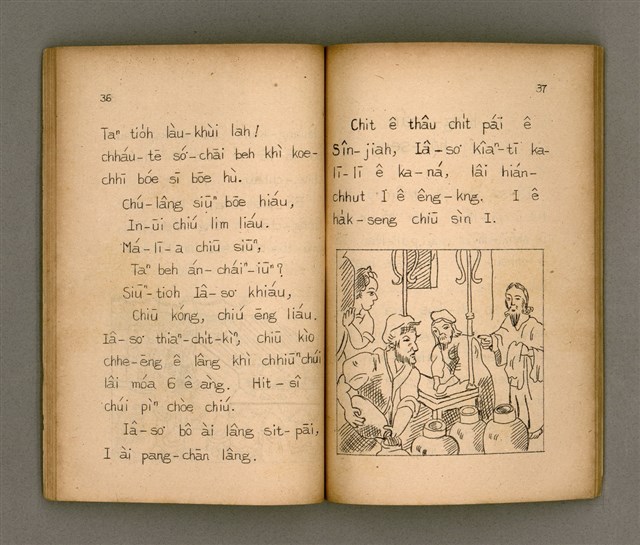 36
Taⁿ tio̍h làu-khùi lah!
chháu-tē só͘-chāi beh khì koe-
chhī bóe sī bōe hù.
Chú-lâng siūⁿ bōe hiáu,
In-ūi chiú lim liáu.
Má-lī-a chiū siūⁿ,
Taⁿ beh án-cháiⁿ-iūⁿ?
Siūⁿ-tio̍h Iâ-so͘ khiáu,
Chiū kóng, chiú ēng liáu.
Iâ-so͘ thiaⁿ-chi̍t-kìⁿ, chiū kìo
chhe-ēng ê lâng khì chhiūⁿ chúi
lâi móa 6 ê àng. Hit-sî
chúi pìⁿ chòe chiú.
Iâ-so͘ bô ài lâng sit-pāi,
I ài pang-chān lâng.
37
Chit ê thâu chi̍t pái ê
Sîn-jiah, Iâ-so͘ kîaⁿ-tī ka-
lī-lī ê ka-ná, lâi hián-
chhut I ê êng-kng. I ê
ha̍k-seng chiū sìn I.